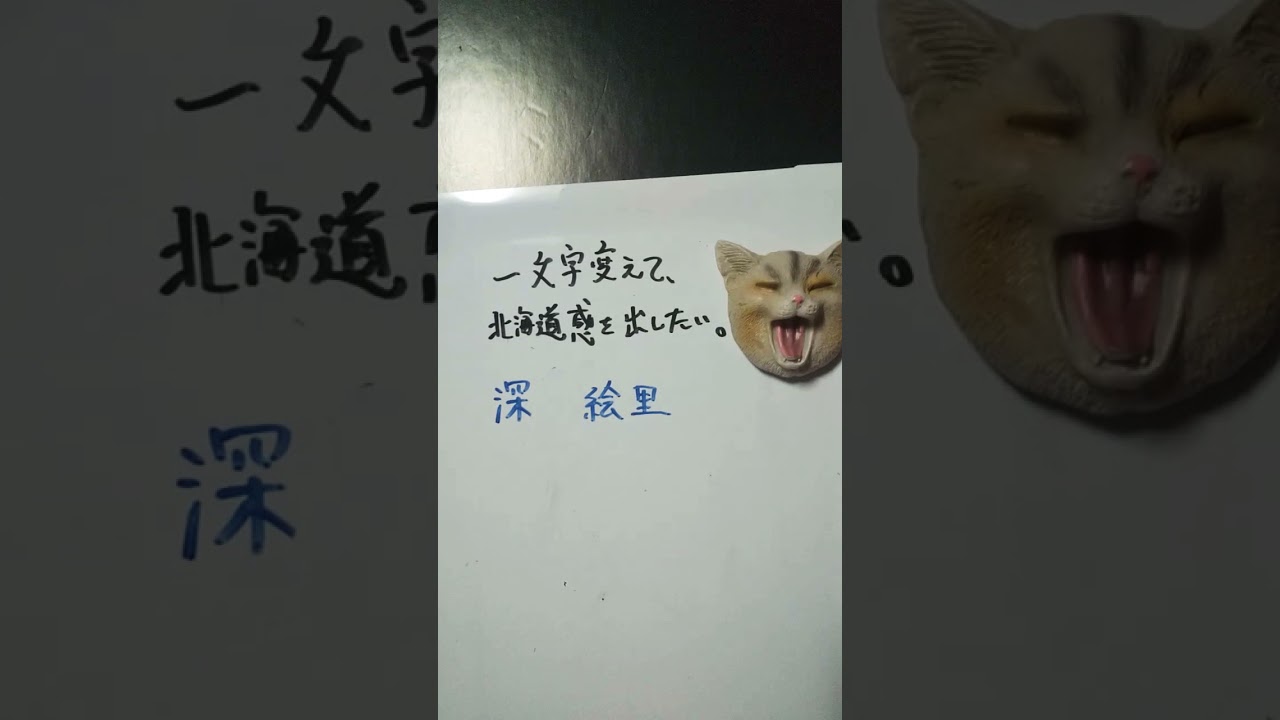 一文字変えて、
北海道感を出したい。
深 絵里